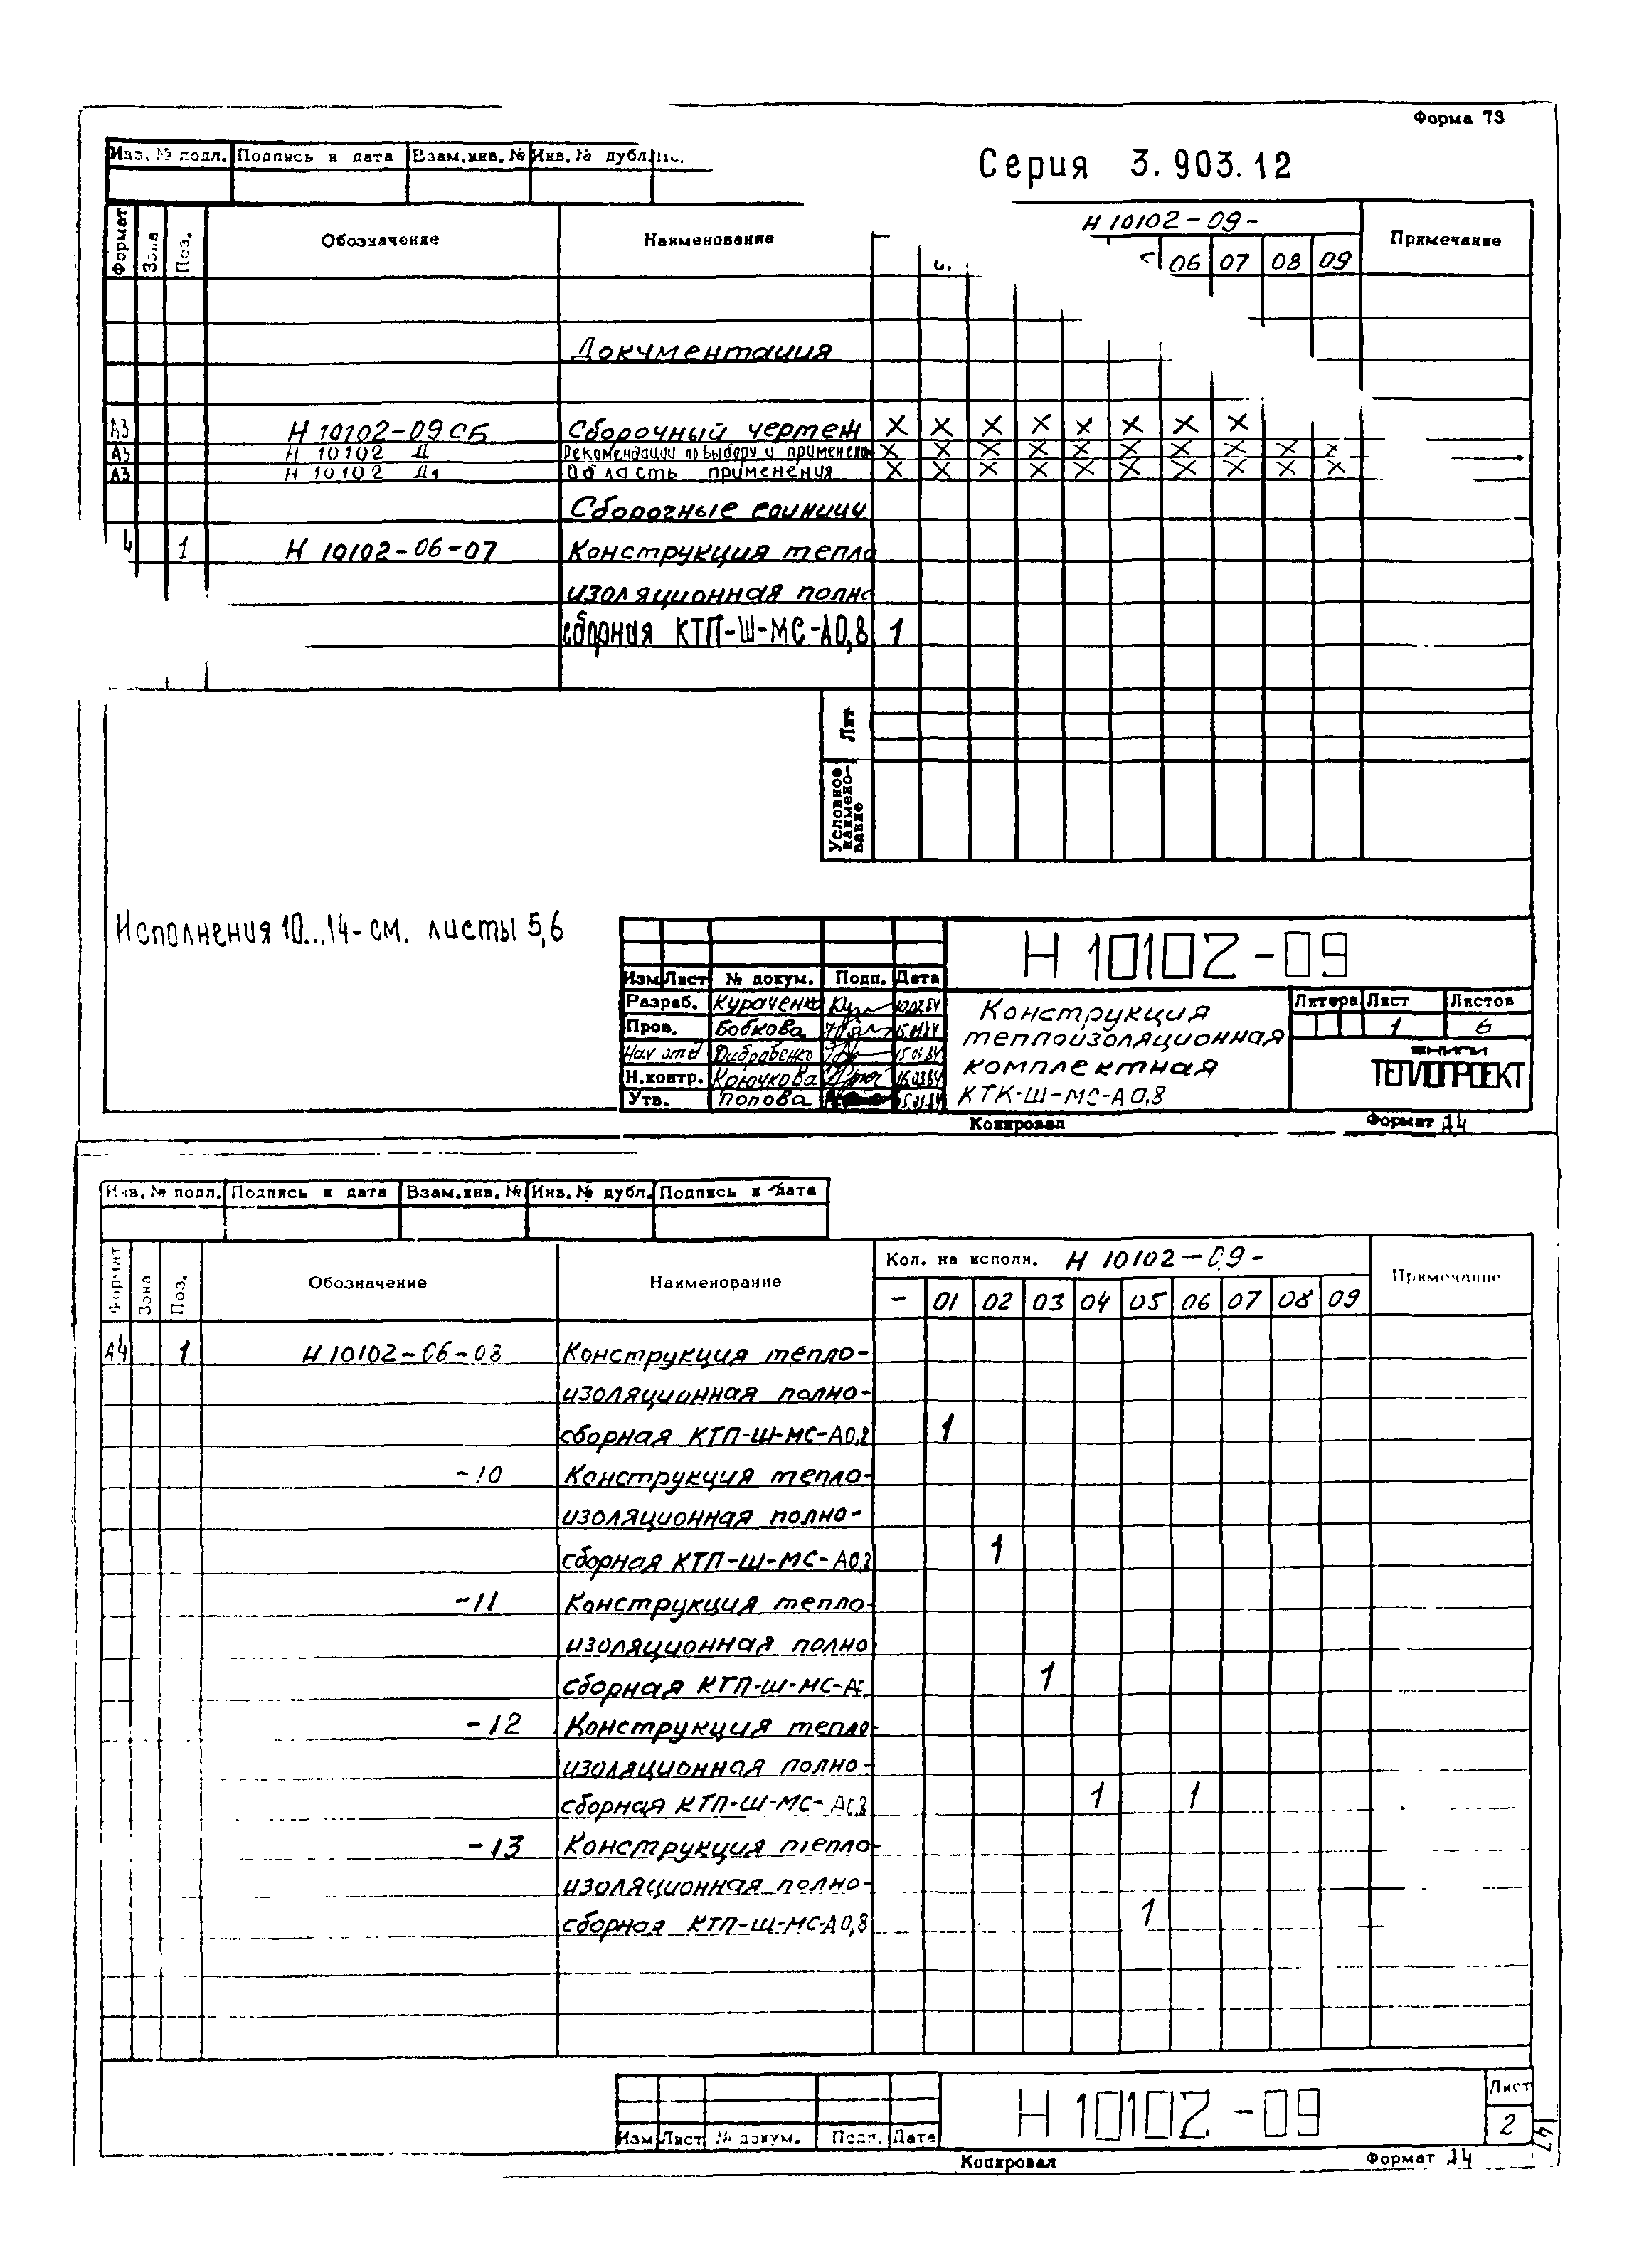 Форма 73
Инв. № подл. Подпись и дата Взам.инв. № Инв. № дубл.
Серия 3.903.12
Формат Зона Поз. Обозначение Наименование Н 10102-09- Примечание
06 07 08 09
Документация
А3 Н 10102-09СБ Сборочный чертеж X X X X X X X X
А3 Н 10102 Д Рекомендации по выбору и применению X X X X X X X X X X
А3 Н 10102 Д1 Область применения X X X X X X X X X X
Сборочные единицы
4 1 Н 10102-06-07 Конструкция тепло
изоляционная полно
сборная КТП-Ш-МС-А0,8 1
Лит
Условное наименование
Исполнения 10...14- см. листы 5,6
Н 10102-09
Изм Лист № докум. Подп. Дата
Разраб. Кураченко
Пров. Бобкова
Нач отд
Н.контр. Крючкова 16.03.84
Утв. Попова
Конструкция
теплоизоляционная
комплектная
КТК-Ш-МС-А0,8
Литера Лист Листов
1 6
ВНИПИ
ТЕПЛОПРОЕКТ
Копировал Формат А4
Инв. № подл. Подпись и дата Взам.инв. № Инв. № дубл. Подпись и дата
Формат Зона Поз. Обозначение Наименование Кол. на исполн. Н 10102-09- Примечание
- 01 02 03 04 05 06 07 08 09
А4 1 Н 10102-06-08 Конструкция тепло-
изоляционная полно-
сборная КТП-Ш-МС-А0,8 1
-10 Конструкция тепло-
изоляционная полно-
сборная КТП-Ш-МС-А0,8 1
-11 Конструкция тепло-
изоляционная полно
сборная КТП-Ш-МС-А 1
-12 Конструкция тепло-
изоляционная полно-
сборная КТП-Ш-МС-А0,8 1 1
-13 Конструкция тепло-
изоляционная полно-
сборная КТП-Ш-МС-А0,8 1
Н 10102-09
Лист
2
Изм Лист № докум. Подп. Дата
Копировал Формат А4
147